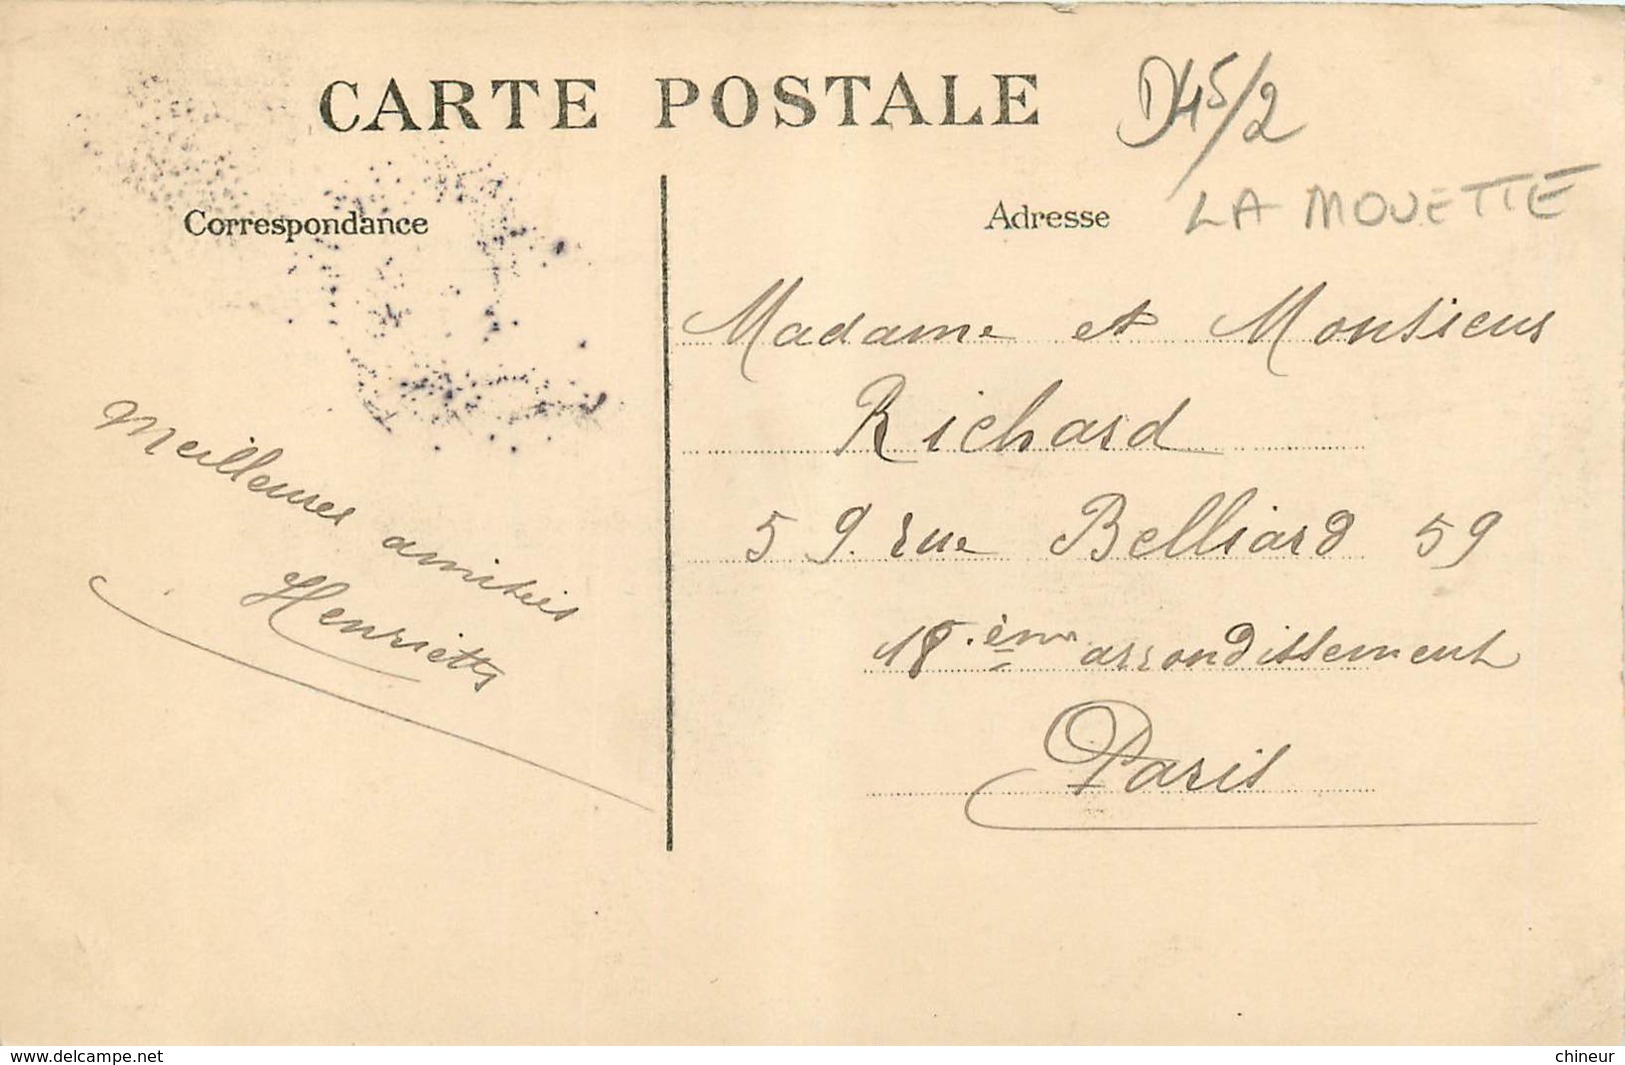 CARTE POSTALE
D45/2
LA MOUETTE
Correspondance
Adresse
Meilleures amitiés
Henriette
Madame et Monsieur
Richard
59. rue Belliard 59
18.ème arrondissement
Paris
www.delcampe.net
chineur